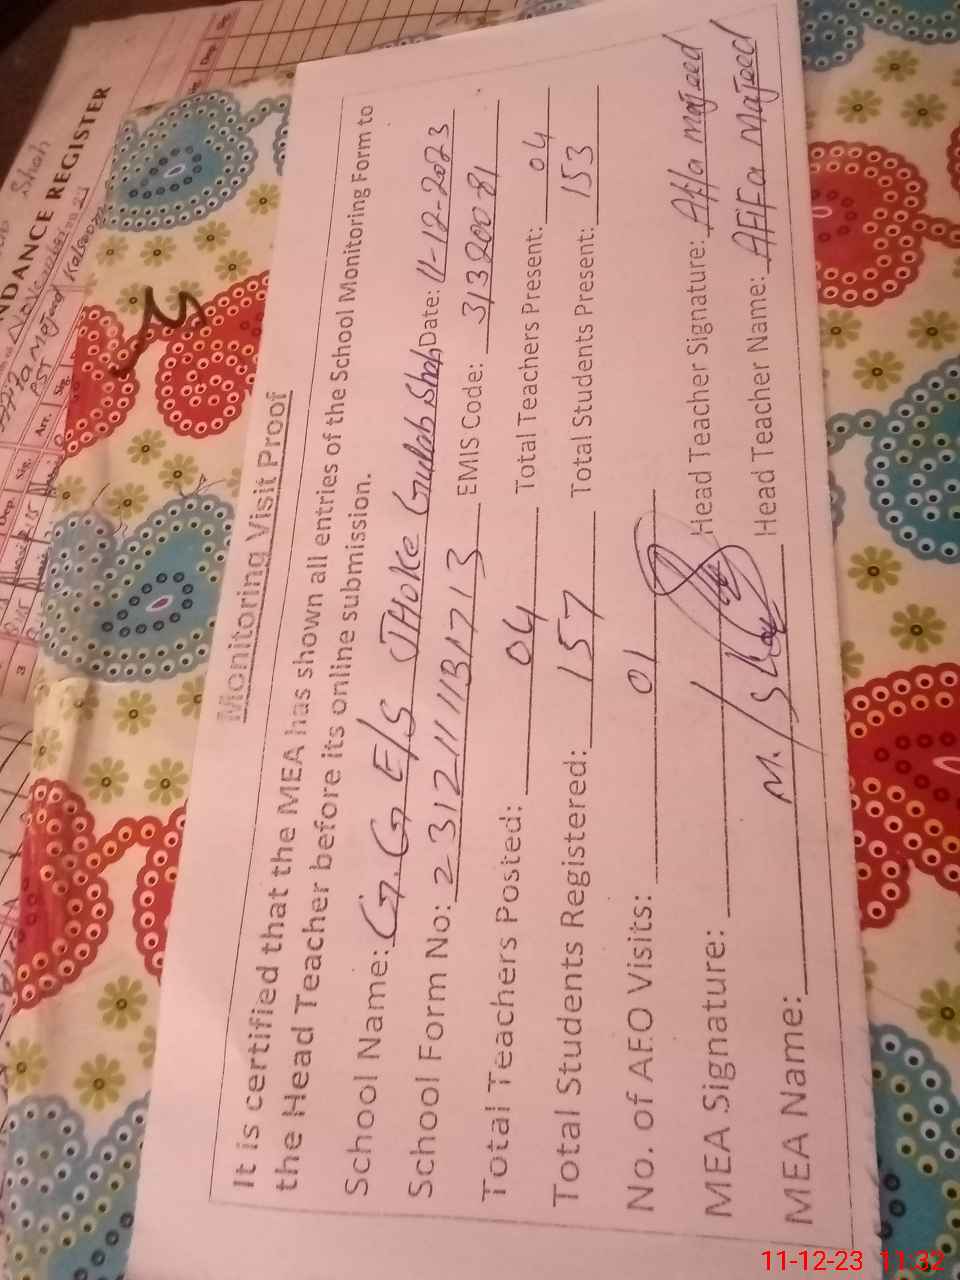 Monitoring Visit Proof
It is certified that the MEA has shown all entries of the School Monitoring Form to
the Head Teacher before its online submission.
School Name: G.G E/S JHOKE Gulab Shah Date: 11-12-2023
School Form No: 2312111131713 EMIS Code: 31320081
Total Teachers Posted: 04 Total Teachers Present: 04
Total Students Registered: 157 Total Students Present: 153
No. of AEO Visits: 01
MEA Signature: Head Teacher Signature: Afifa Majeed
MEA Name: M. Head Teacher Name: AFIFa MaJeed
NDANCE REGISTER
Shah
November
Majeed
PST
Arr. Sig.
Dep. Sig.
3
11-12-23 11:32